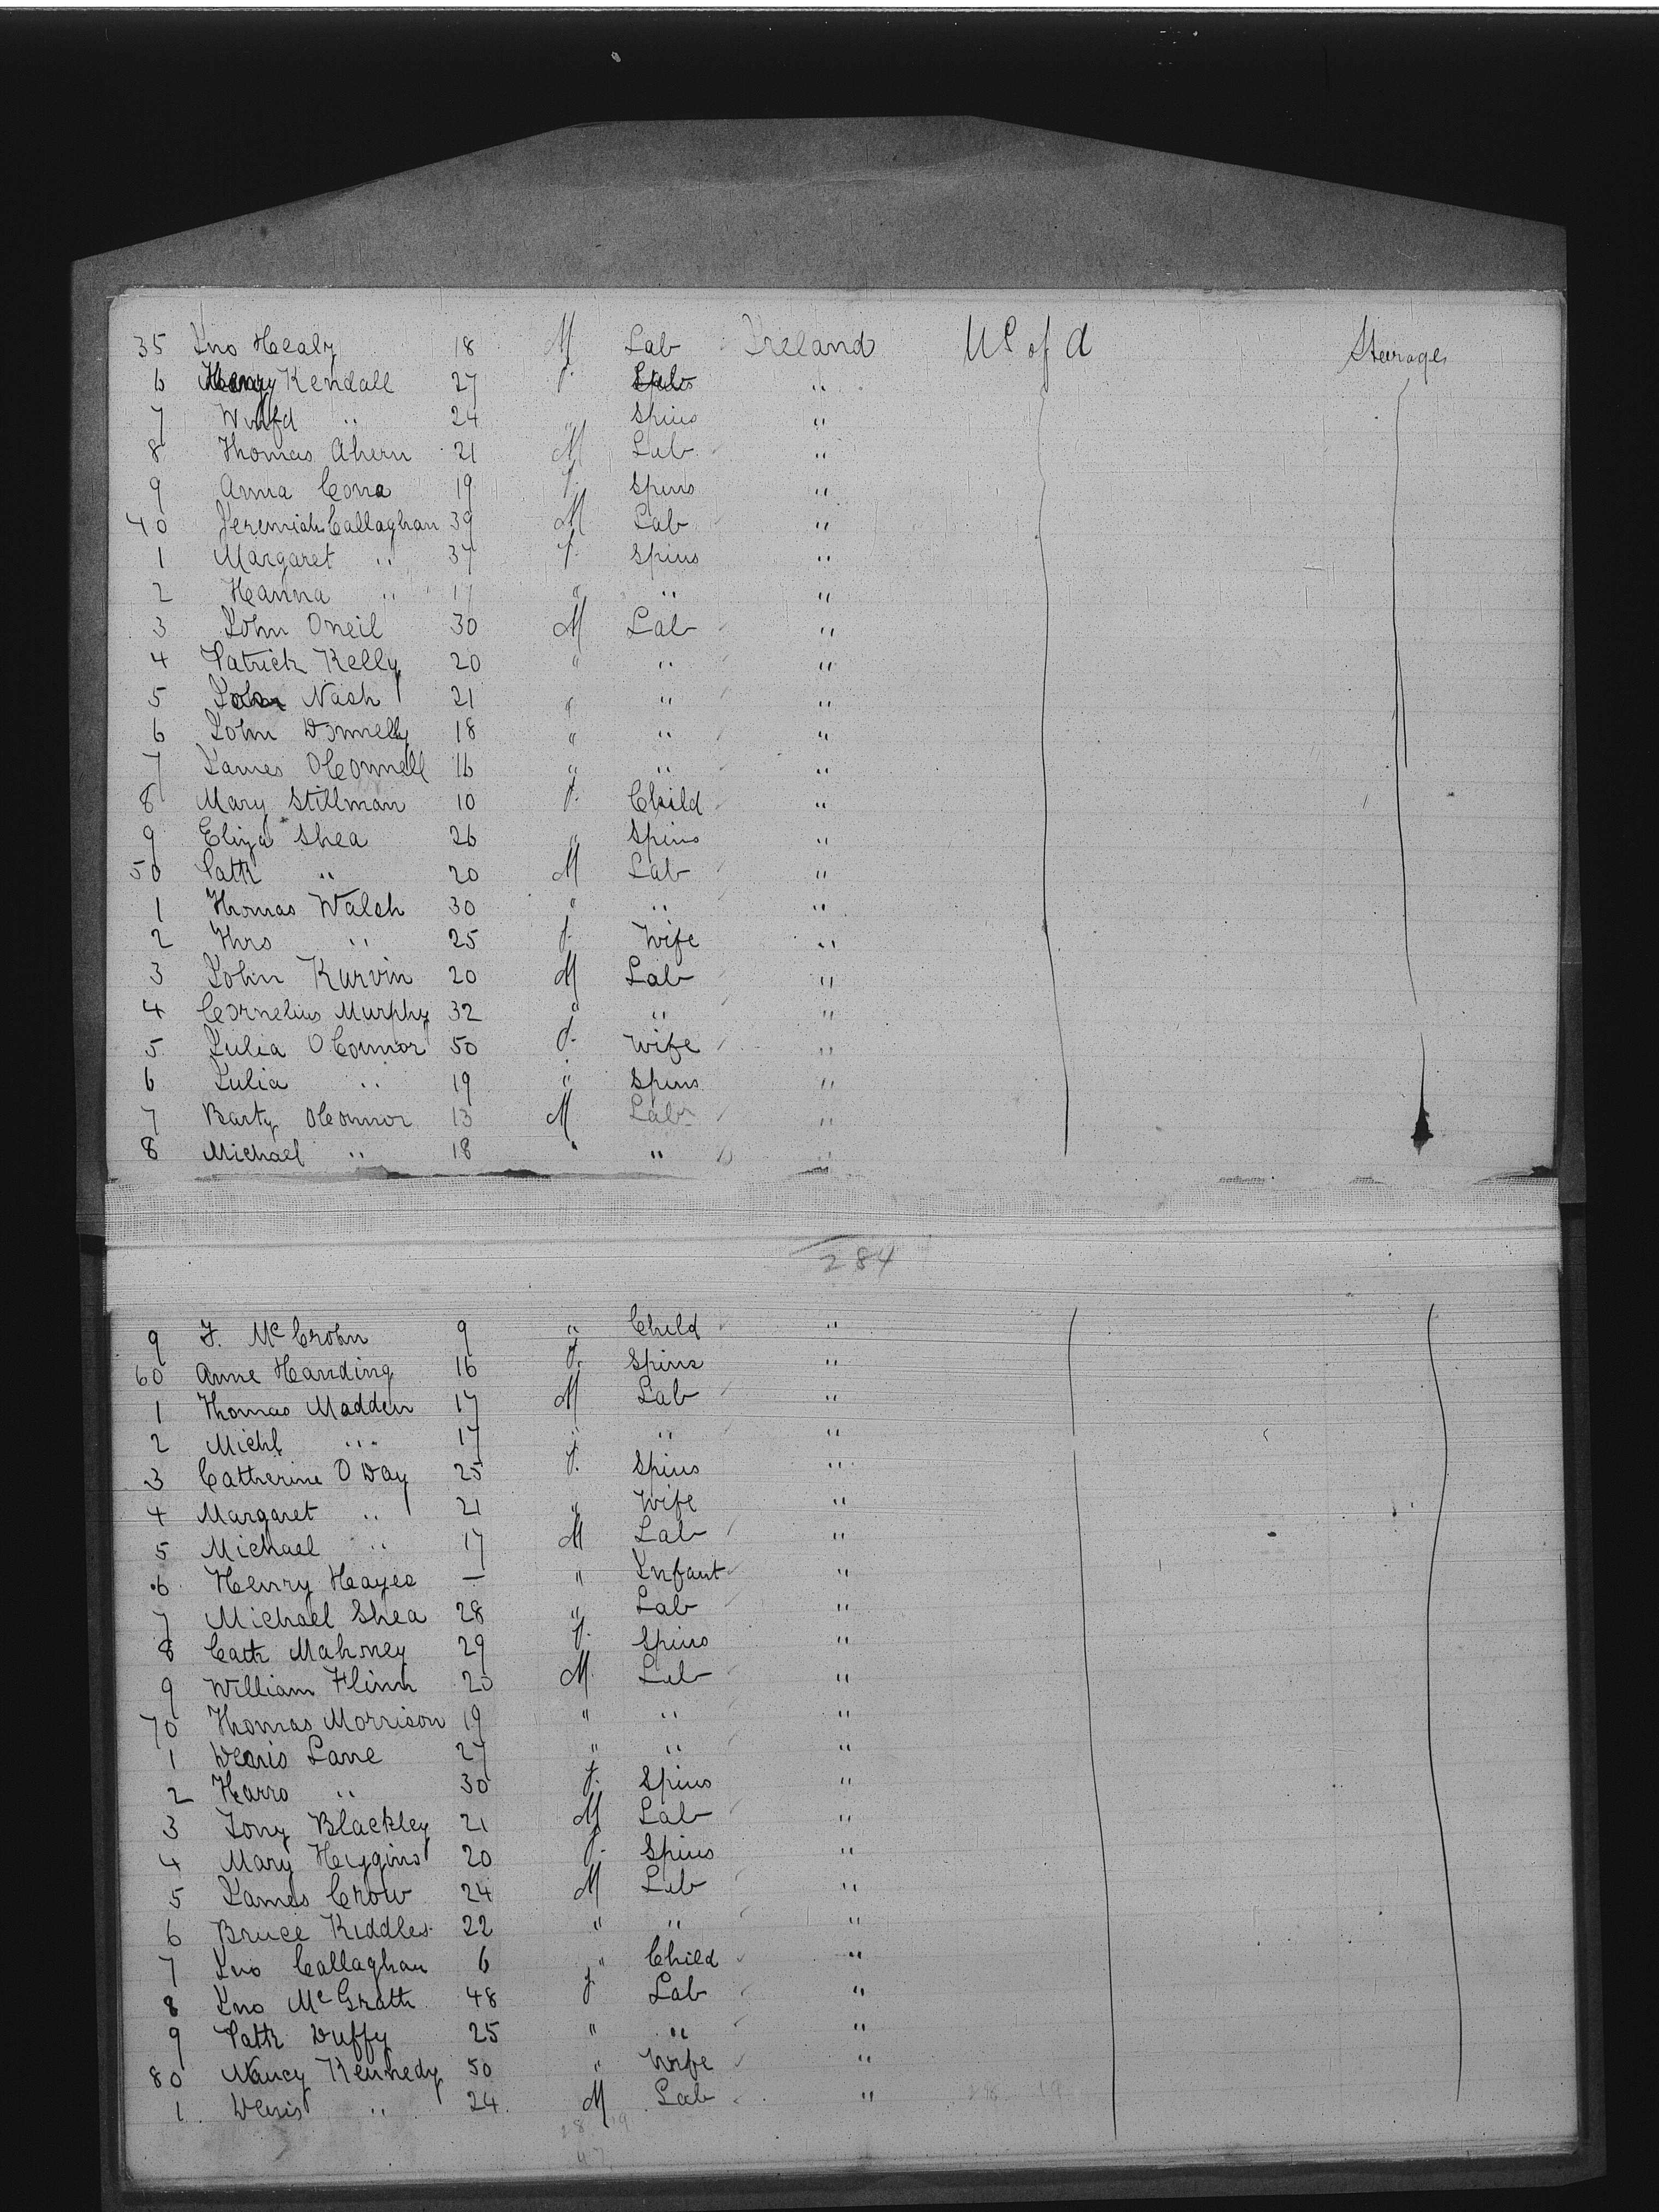 35 Jno Healy 18 M Lab Ireland U S of A Steerage
6 Kendall 27 f. "
7 Winfd " 24 " Spins "
8 Thomas Ahern 21 M Lab "
9 Anna Cona 19 f. Spins "
40 Jeremiah Callaghan 39 M Lab "
1 Margaret " 37 f. Spins "
2 Hanna " 17 " " "
3 John Oneil 30 M Lab "
4 Patrick Kelly 20 " " "
5 John Nash 21 " " "
6 John Donnelly 18 " " "
7 James OConnell 16 " " "
8 Mary Stillman 10 f. Child "
9 Eliza Shea 26 " Spins "
50 Patk " 20 M Lab "
1 Thomas Walsh 30 " " "
2 Mrs " 25 f. Wife "
3 John Kurvin 20 M Lab "
4 Cornelius Murphy 32 " " "
5 Julia OConnor 50 f. Wife "
6 Julia " 19 " Spins "
7 Barty OConnor 13 M Lab "
8 Michael " 18 " " "
284
9 J. McCrohn 9 " Child "
60 Anne Handing 16 f. Spins "
1 Thomas Madden 17 M Lab "
2 Michl " 17 " " "
3 Catherine O Day 25 f. Spins "
4 Margaret " 21 " Wife "
5 Michael " 17 M Lab "
6 Henry Hayes — " Infant "
7 Michael Shea 28 " Lab "
8 Cath Mahoney 29 f. Spins "
9 William Flinn 20 M Lab "
70 Thomas Morrison 19 " " "
1 Denis Lane 27 " " "
2 " 30 f. Spins "
3 Tony Blackley 21 M Lab "
4 Mary Higgins 20 f. Spins "
5 James Crow 24 M Lab "
6 Bruce Kiddles 22 " " "
7 Jno Callaghan 6 " Child "
8 Jno McGrath 48 f Lab "
9 Patk Duffy 25 " " "
80 Nancy Kennedy 50 " Wife "
1 Denis " 24 M Lab "